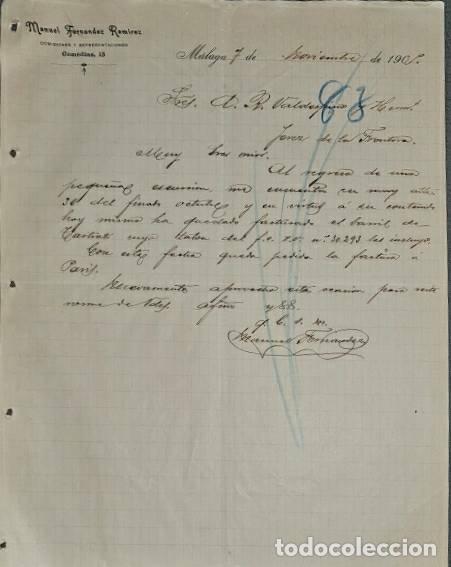 Manuel Fernandez Ramirez
COMISIONES Y REPRESENTACIONES
Comedias, 15
Malaga 7 de Noviembre de 1905.
Sres. A. R. Valdespino y Herno.
Jerez de la Frontera.
Muy Sres mios:
Al regreso de una
pequeña escursion me encuentro su muy
30 del finado octubre y en virtud á su contenido
hoy mismo ha quedado facturado el barril de
cuyo talon del f. c. nº 30.293 les incluyo.
Con esta fecha queda pedida la factura á
Paris.
Nuevamente aprovecho esta ocasion para
de Vdes. afmo y SS.
q. b. s. m.
Manuel Fernandez
todocoleccion.net